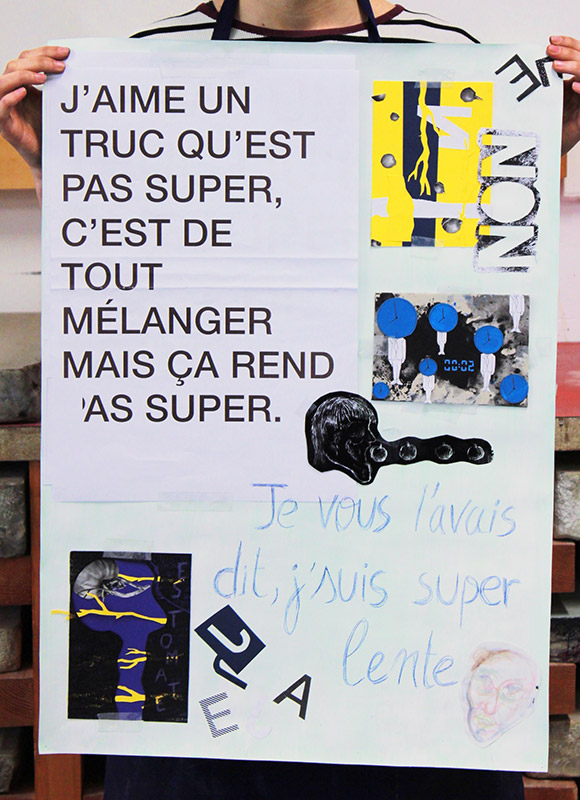 J'AIME UN
TRUC QU'EST
PAS SUPER,
C'EST DE
TOUT
MÉLANGER
MAIS ÇA REND
PAS SUPER.
NON
00:02
Je vous l'avais
dit, j'suis super
lente
ESTOMATE
E
A